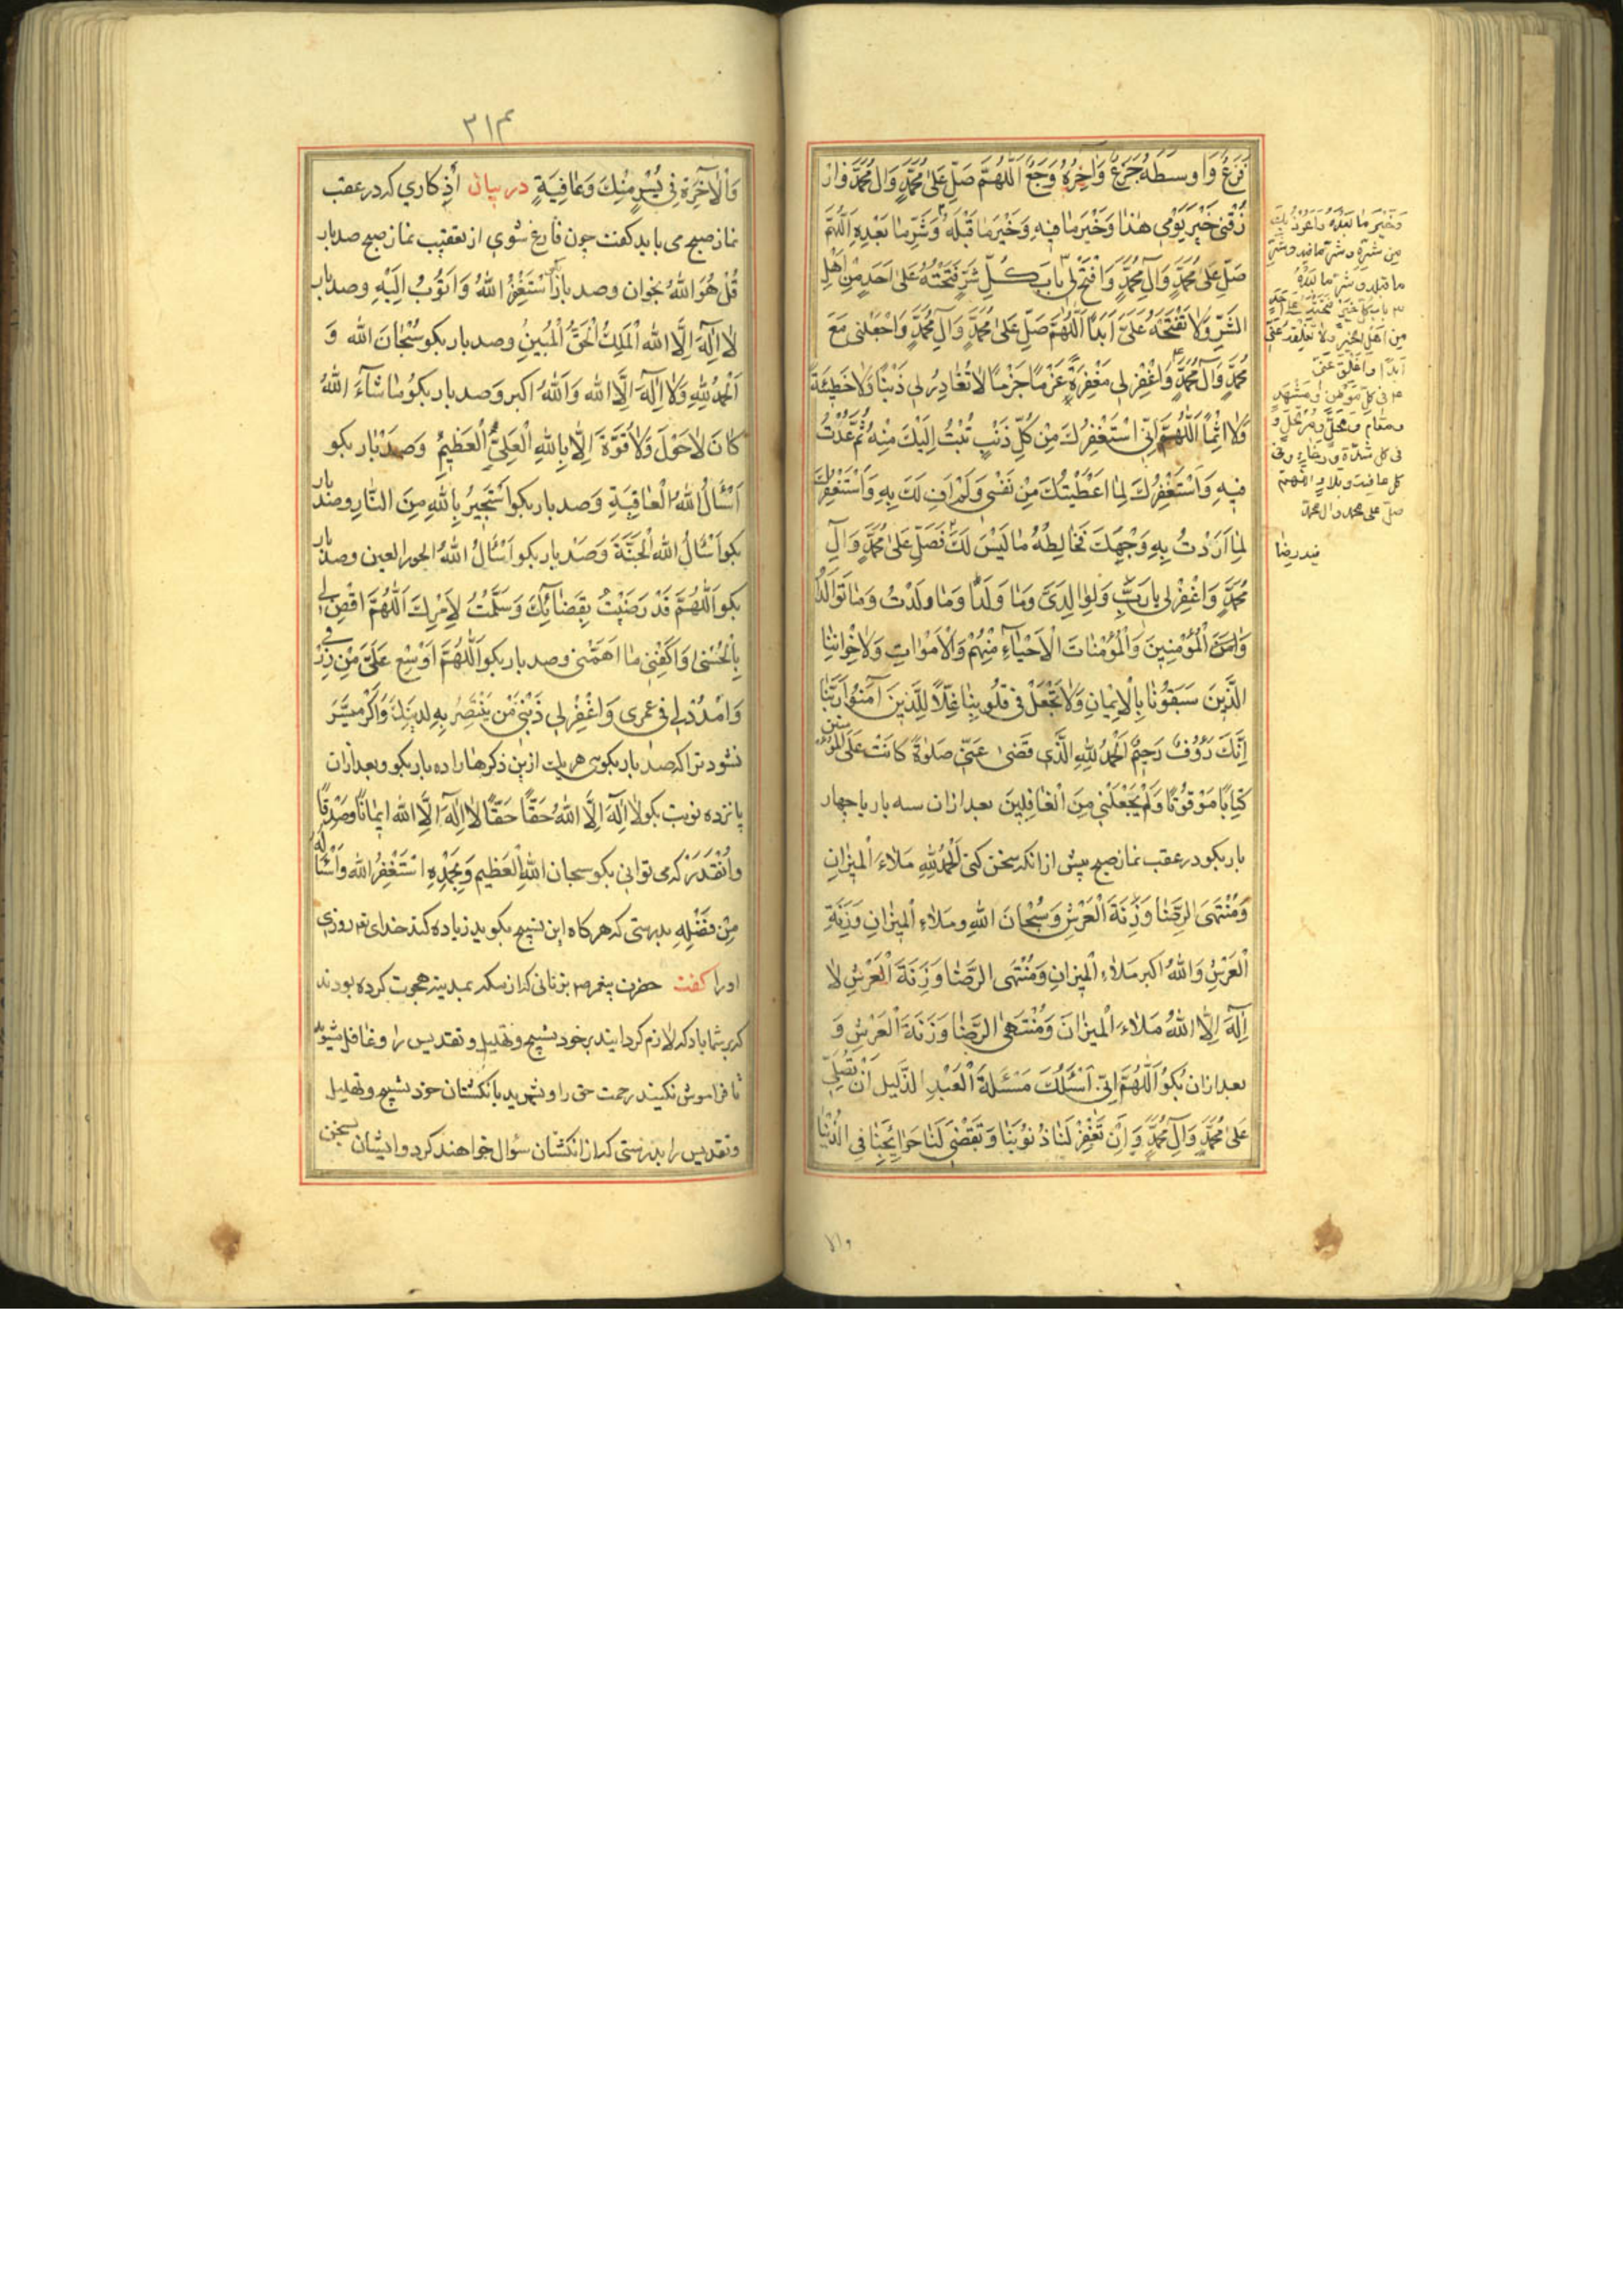 فَزَعٌ وَاوسَطَهُ جَزَعٌ وَاخِرُهُ وَجَعٌ اَللّهُمَّ صَلِّ عَلىٰ مُحَمَّدٍ وَالِ مُحَمَّدٍ وَارْ
زُقْنِى خَيْرَ يَوْمِى هٰذَا وَخَيْرَ مٰا فِيهِ وَخَيْرَ مٰا قَبْلَهُ وَشَرِّ مٰا بَعْدِهِ اَللّهُمَّ
صَلِّ عَلىٰ مُحَمَّدٍ وَآلِ مُحَمَّدٍ وَافْتَحْ لِى بٰابَ كُلِّ شَرٍّ فَتَحْتَهُ عَلىٰ اَحَدٍ مِنْ اَهْلِ
الشَّرِّ وَلاٰ تَفْتَحْهُ عَلَىَّ اَبَداً اَللّٰهُمَّ صَلِّ عَلىٰ مُحَمَّدٍ وَآلِ مُحَمَّدٍ وَاجْعَلْنِى مَعَ
مُحَمَّدٍ وَآلِ مُحَمَّدٍ وَاغْفِرْ لِى مَغْفِرَةً عَزْمًا جَزْمًا لاٰ تُغٰادِرُ لِى ذَنْبًا وَلاٰ خَطِيئَةً
وَلاٰ اثْمًا اَللّٰهُمَّ اِنِّى اسْتَغْفِرُكَ مِنْ كُلِّ ذَنْبٍ تُبْتُ اِلَيْكَ مِنْهُ ثُمَّ عُدْتُ
فِيهِ وَاَسْتَغْفِرُكَ لِمٰا اَعْطَيْتُكَ مِنْ نَفْسِى وَلَمْ اَفِ لَكَ بِهِ وَاَسْتَغْفِرُكَ
لِمٰا اَرَدْتُ بِهِ وَجْهَكَ فَخٰالَطَهُ مٰا لَيْسَ لَكَ فَصَلِّ عَلىٰ مُحَمَّدٍ وَآلِ
مُحَمَّدٍ وَاغْفِرْ لِى يٰا رَبِّ وَلِوٰالِدَىَّ وَمٰا وَلَدٰا وَمٰا وَلَدْتُ وَمٰا تَوٰالَدُوا
وَامِنَ الْمُؤْمِنِينَ وَالْمُؤْمِنٰاتِ الْاَحْيٰآءِ مِنْهُمْ وَالْاَمْوٰاتِ وَلِاخْوٰانِنَا
الَّذِينَ سَبَقُونٰا بِالْاِيمٰانِ وَلاٰ تَجْعَلْ فِى قُلُوبِنٰا غِلًّا لِلَّذِينَ آمَنُوا رَبَّنٰا
اِنَّكَ رَؤُوفٌ رَحِيمٌ اَلْحَمْدُ لِلّٰهِ الَّذِى قَضىٰ عَنِّى صَلوٰةً كانَتْ عَلَى الْمُؤْمِنِينَ
كِتٰابًا مَوْقُوتًا وَلَمْ يَجْعَلْنِى مِنَ الْغٰافِلِينَ بعد ازان سه بار يا چهار
بار بكو در عقب نماز صبح پيش از انكه سخن كنى اَلْحَمْدُ لِلّٰهِ مَلاٰءَ الْمِيزٰانِ
وَمُنْتَهَى الرِّضٰا وَزِنَةَ الْعَرْشِ وَسُبْحٰانَ اللّٰهِ ومَلاٰءَ الْمِيزٰانِ وَزِنَةِ
الْعَرْشِ وَاللّٰهُ اكبر مَلاٰءَ الْمِيزانِ وَمُنْتَهَى الرَّضٰا وَزِنَةَ الْعَرْشِ لاٰ
اِلٰهَ اِلاَّ اللّٰهُ مَلاٰءَ الْمِيزٰانَ وَمُنْتَهىَ الرِّضٰا وَزِنَةَ الْعَرْشِ وَ
بعد ازان بُكوُ اَللّٰهُمَّ اِنِّى اَسْئَلُكَ مَسْئَلَةَ الْعَبْدِ الذَّلِيلِ انْ تُصَلِّىَ
عَلىٰ مُحَمَّدٍ وَآلِ مُحَمَّدٍ وَاَنْ تَغْفِرْ لَنٰا ذُنُوبَنٰا وَتَقْضِىَ لَنٰا حَوٰائِجَنٰا فِى الدُّنْيٰا
والا
وَخَيْرَ مٰا بَعْدَهُ وَاَعُوذُ بِكَ
مِن شَرِّهِ وشَرِّ مٰا فيه وشرِّ
ما قبله وَشرّ ما بَعْدَهُ
باب كلّ خَيْرٍ فَتَحْتَهُ عَلىٰ اَحَدٍ
مِن اَهْلِ الخير ولاٰ تُغْلِقْهُ عَنّى
اَبَداً وَاَغْلِقْ عَنّى
فى كلّ مَوْطِنٍ وَمَشْهَدٍ
ومقام ومحلّ ومُرْتَحَلٍ و
فى كل شدّة ورخاءٍ وفى
كل عافيت وبلاءٍ اللّهمّ
صلّ على محمد وال محمد
٣١٣
وَالْاٰخِرَةِ فِى يُسْرٍ مِنْكَ وَعٰافِيَةٍ در بيان أذكارى كه در عقب
نماز صبح مى بايد كفت چون فارغ شوى از تعقيب نماز صبح صد بار
قُلْ هُوَ اللّٰهُ بخوان وصد بار اَسْتَغْفِرُ اللّٰهُ وَاَتُوبُ اِلَيْهِ وصد بار
لاٰ اِلٰهَ اِلَّا اللّٰه الْمَلِكُ الْحَقُّ الْمُبِينُ وصد بار بكو سُبْحٰانَ اللّٰه وَ
اَلْحَمْدُ لِلّٰهِ وَلاٰ اِلٰهَ اِلَّا اللّٰه وَاللّٰهُ اكبر وَصد بار بكوُ مٰا شٰآءَ اللّٰهُ
كٰانَ لاٰ حَوْلَ وَلاٰ قُوَّةَ اِلاّ بِاللّٰهِ الْعَلِىِّ الْعَظِيمُ وَصَدْ بار بكو
اَسْئَالُ اللّٰهُ الْعٰافِيَةِ وَصد بار بكو اَسْتَجِيرُ بِاللّٰهِ مِنَ النّٰارِ وصد بار
بكو اَسْئَالُ اللّٰه الْجَنَّةَ وَصَدْ بار بكو اَسْئَالُ اللّٰهُ الحور العين وصد بار
بكو اَللّٰهُمَّ قَدْ رَضِيْتُ بِقَضٰائِكَ وَسَلَّمْتُ لِاَمْرِكَ اَللّٰهُمَّ اقْضِ لى
بِالْحُسْنىٰ وَاكْفِنِى مٰا اهَمَّنى وصد بار بكو اَللّٰهُمَّ اَوْسِع عَلَىَّ مِنْ رِزْقِى
وَامْدُدْ لِى فى عمرى وَاغْفِرْ لِى ذَنْبِى مَن يَنْتَصِرُ بِهِ لِدِينِكَ وَاكر ميسَّرَ
نشود ترا كه صد بار بكوى هر يك از ين ذكرها را ده بار بكو وبعد ازان
پانزده نوبت بكو لاٰ اِلٰهَ اِلَّا اللّٰهُ حَقًّا حَقًّا لاٰ اِلٰهَ اِلَّا اللّٰه ايمٰانًا وَصِدْقًا
وانْقَدَرْ كه مى توانى بكو سبحان اللّٰهِ الْعَظيم وَبِحَمْدِهِ اسْتَغْفِرُ اللّٰه وَاَسْئَالُهُ
مِنْ فَضْلِهِ بدرستى كه هر كاه اين تسبيح بكويد زياده كند خداى تع روزى
اورا كفت حضرت پيغمبر ص بزنانى كه از مكه بمدينه هجرت كرده بودند
كه بر شما باد كه لازم كردانيد بر خود تسبيح وتهليل وتقديس را وغافل مشويد
تا فراموش نكنيد رحمت حق را وشمريد بانكشتان خود تسبيح وتهليل
وتقديس را بدرستى كه از انكشتان سؤال خواهند كرد وايشان بسخن